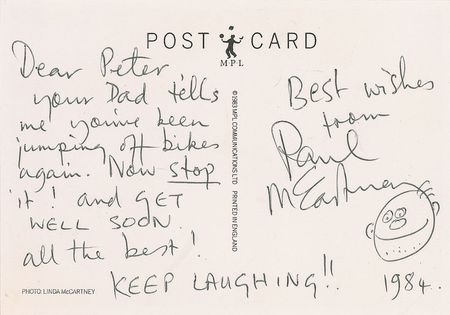 POST CARD
MPL
Dear Peter
your Dad tells
me you've been
jumping off bikes
again. Now stop
it! and GET
WELL SOON.
all the best!
KEEP LAUGHING!!
© 1983 MPL COMMUNICATIONS LTD PRINTED IN ENGLAND
Best wishes
from
Paul
McCartney
1984.
PHOTO: LINDA McCARTNEY